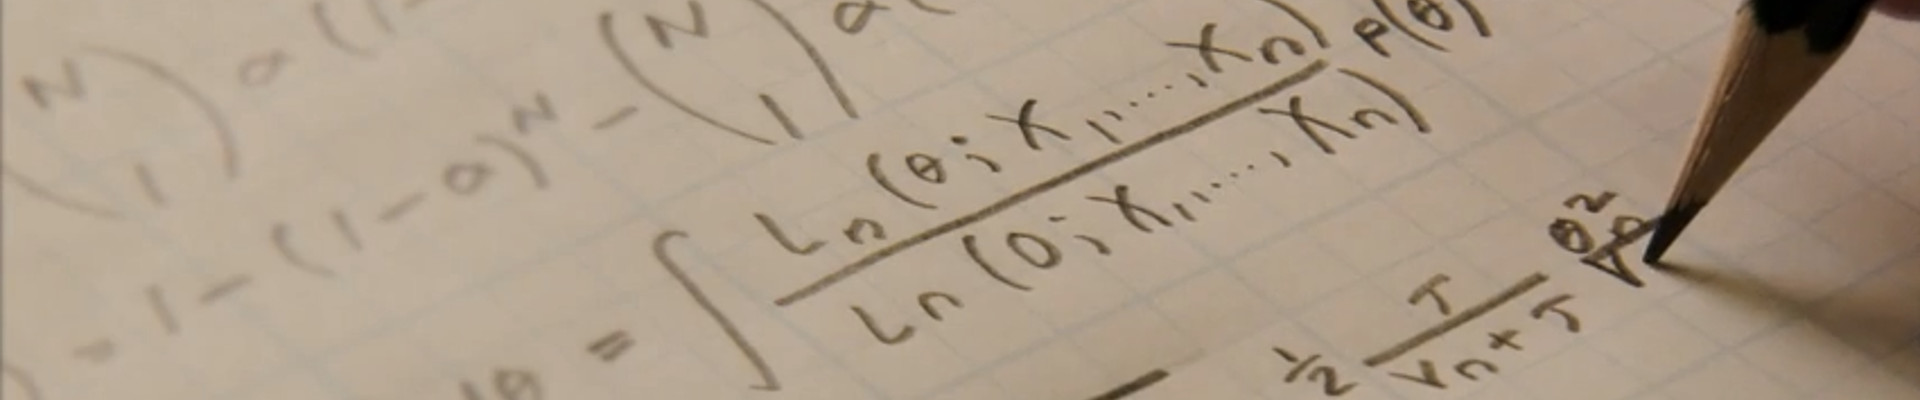 (N 1) α (1-
= 1 - (1-α)^N - (N 1) α(
dθ = ∫ Ln(θ; X1,....,Xn) / Ln(0; X1,....,Xn) P(θ)
1/2 T / Vn + T θ²